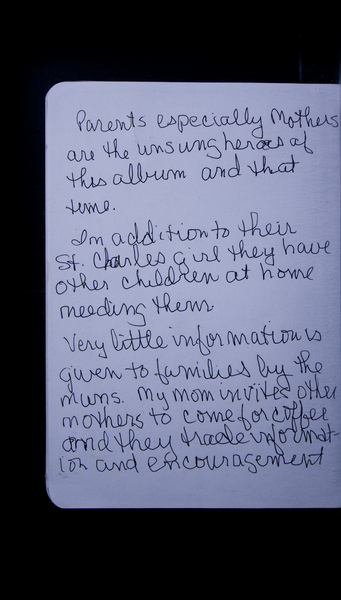 Parents especially Mothers
are the unsung heroes of
this album and that
time.
In addition to their
St. Charles girl they have
other children at home
needing them
Very little information is
given to families by the
nuns. My mom invites other
mothers to come for coffee
and they trade informat-
ion and encouragement